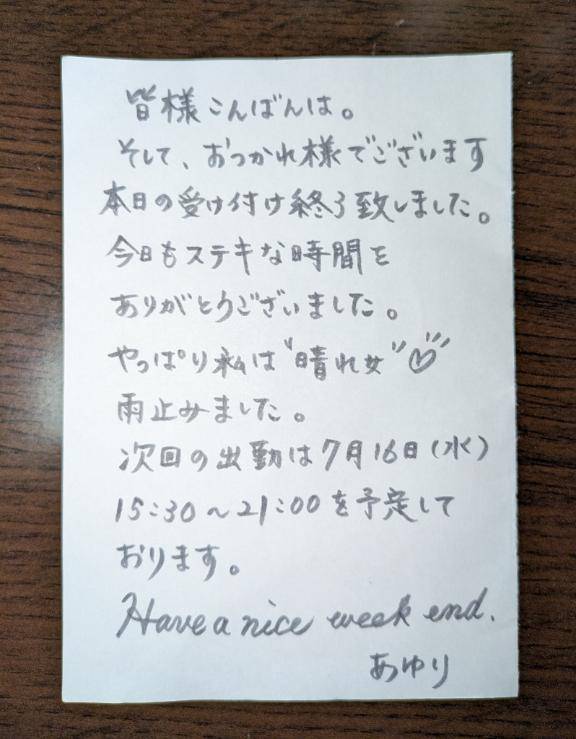 皆様こんばんは。
そして、おつかれ様でございます
本日の受け付け終了致しました。
今日もステキな時間を
ありがとうございました。
やっぱり私は"晴れ女"♡
雨止みました。
次回の出勤は7月16日(水)
15:30～21:00を予定して
おります。
Have a nice week end.
あゆり